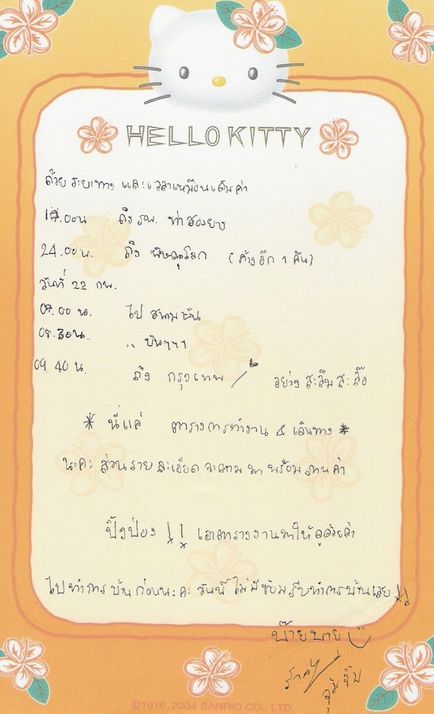 HELLO KITTY
ด้วยระยะทาง และเวลาเหมือนเดิมค่ะ
17.00น ถึง รพ. ท่าสองยาง
24.00น. ถึง พิษณุโลก (ค้างอีก 1 คืน)
วันที่ 22 กพ.
07.00 น. ไป สนามบิน
08.30น. .. บินฯฯฯ
09.40 น. ถึง กรุงเทพ อย่าง สะลึม สะลือ
* นี่แค่ ตารางการทำงาน & เดินทาง *
นะคะ ส่วนรายละเอียด จะตามมา พร้อม ค่ะ
ปิ๊งป่อง !! เอาตารางงานมาให้ดูด้วยค่ะ
ไปทำการบ้านก่อนนะคะ วันนี้ไม่มีซ้อม รีบทำการบ้านเลย !!
บ๊ายบาย
©1976, 2004 SANRIO CO., LTD.